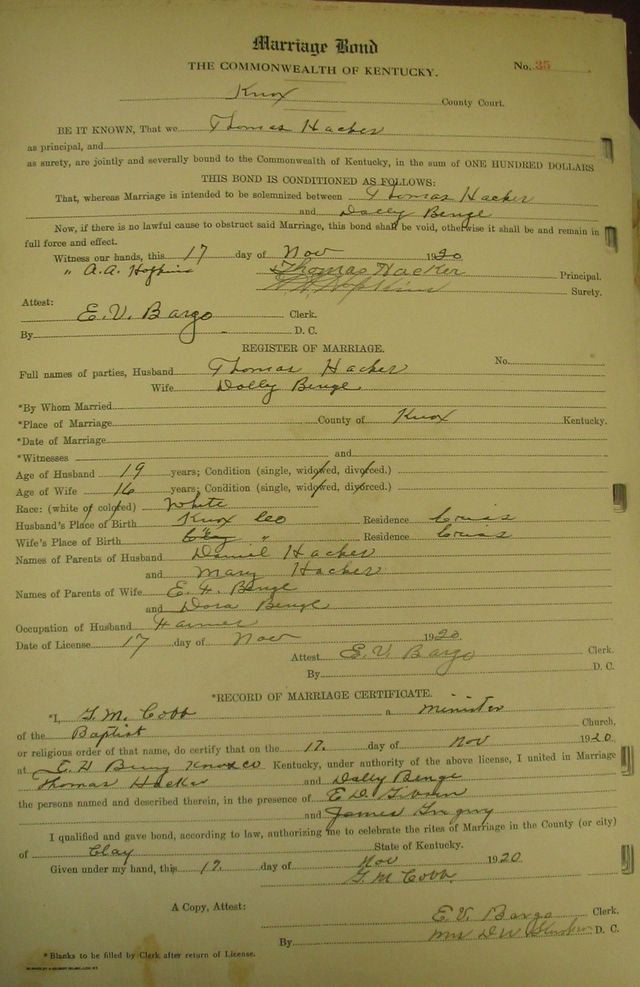 Marriage Bond
THE COMMONWEALTH OF KENTUCKY.
No. 35
Knox County Court.
BE IT KNOWN, That we Thomas Hacker
as principal, and
as surety, are jointly and severally bound to the Commonwealth of Kentucky, in the sum of ONE HUNDRED DOLLARS
THIS BOND IS CONDITIONED AS FOLLOWS:
That, whereas Marriage is intended to be solemnized between Thomas Hacker
and Dolly Benge
Now, if there is no lawful cause to obstruct said Marriage, this bond shall be void, otherwise it shall be and remain in
full force and effect.
Witness our hands, this 17 day of Nov 1920
" A.A. Hopkins Thomas Hacker Principal.
Hopkins Surety.
Attest:
E.V. Bargo Clerk.
By D. C.
REGISTER OF MARRIAGE.
No.
Full names of parties, Husband Thomas Hacker
Wife Dolly Benge
*By Whom Married
*Place of Marriage County of Knox Kentucky.
*Date of Marriage
*Witnesses and
Age of Husband 19 years; Condition (single, widowed, divorced.)
Age of Wife 16 years; Condition (single, widowed, divorced.)
Race: (white or colored) White
Husband's Place of Birth Knox Co Residence
Wife's Place of Birth Clay " Residence
Names of Parents of Husband Daniel Hacker
and Mary Hacker
Names of Parents of Wife E. F. Benge
and Dora Benge
Occupation of Husband Farmer
Date of License 17 day of Nov 1920
Attest E.V. Bargo Clerk.
By D. C.
*RECORD OF MARRIAGE CERTIFICATE.
*I, G.M. Cobb a Minister
of the Baptist Church,
or religious order of that name, do certify that on the 17. day of Nov 1920
at Knox Co Kentucky, under authority of the above license, I united in Marriage
Thomas Hacker and Dolly Benge
the persons named and described therein, in the presence of E.D.
and James
I qualified and gave bond, according to law, authorizing me to celebrate the rites of Marriage in the County (or city)
of Clay State of Kentucky.
Given under my hand, this 17. day of Nov 1920
G.M. Cobb.
A Copy, Attest: E.V. Bargo Clerk.
By Mrs D W D. C.
*Blanks to be filled by Clerk after return of License.